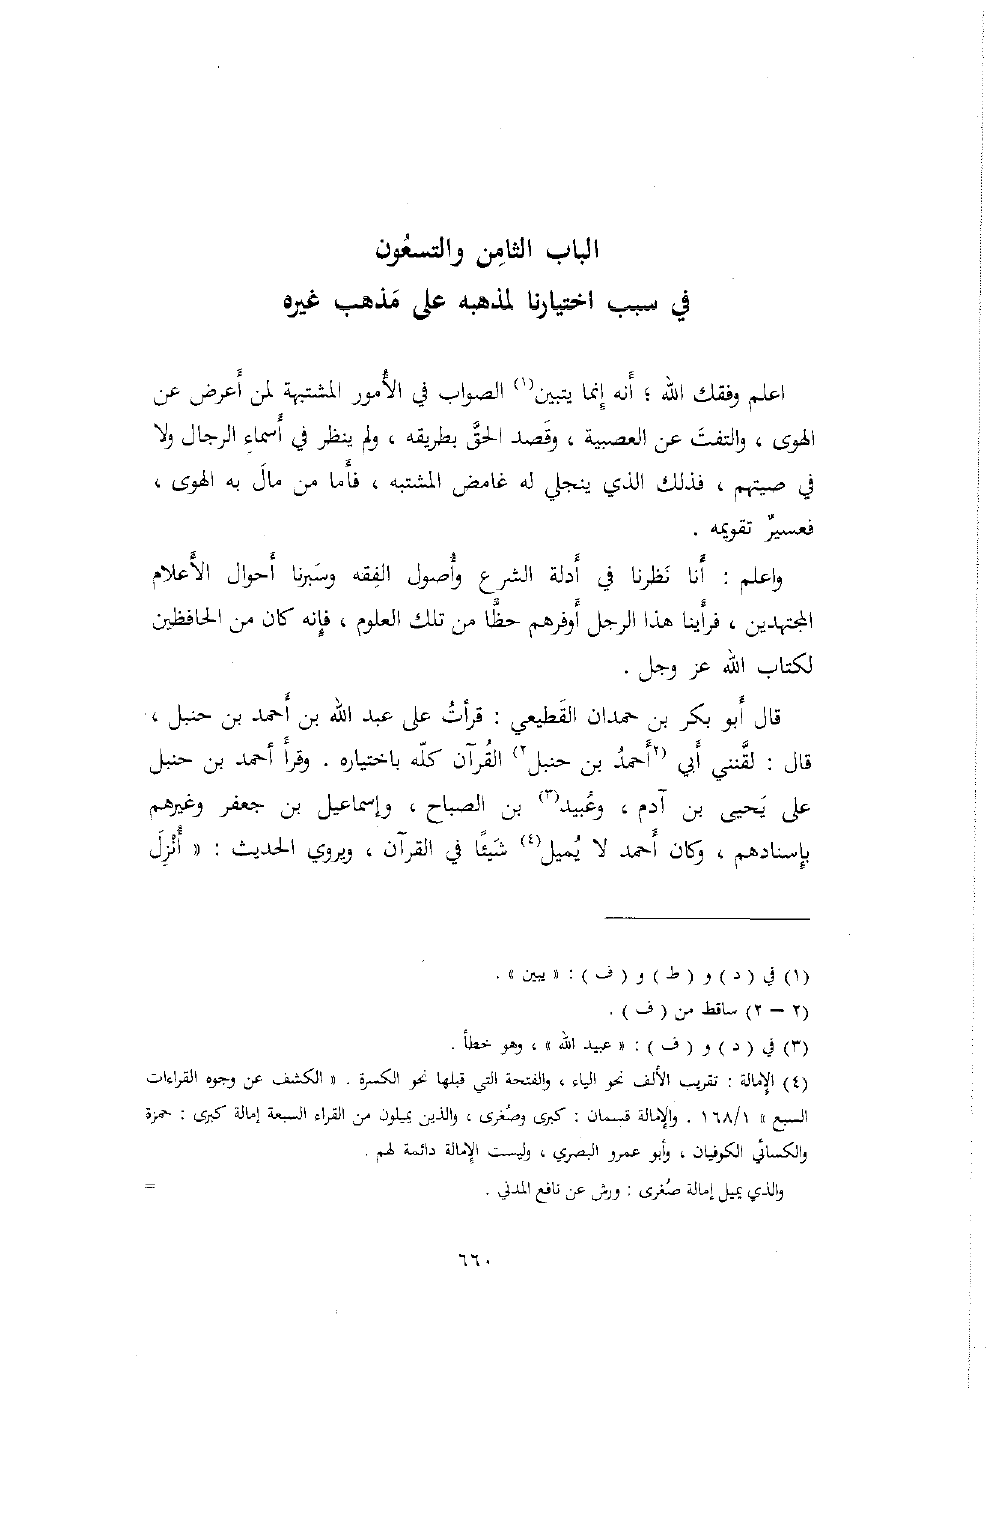 الباب الثامِن والتسعُون
في سبب اختيارنا لمذهبه على مَذهب غيره
اعلم وفقك الله ؛ أَنه إِنما يتبين(١) الصواب في الأُمور المشتبهة لمن أَعرض عن
الهوى ، والتفتَ عن العصبية ، وقَصد الحقَّ بطريقه ، ولم ينظر في أَسماءِ الرجال ولا
في صيتهم ، فذلك الذي ينجلي له غامض المشتبه ، فأَما من مالَ به الهوى ،
فعسيرٌ تقويمه .
واعلم : أَنا نَظرنا في أَدلة الشرع وأُصول الفِقه وسَبرنا أَحوال الأَعلام
المجتهدين ، فرأَينا هذا الرجل أَوفرهم حظًّا من تلك العلوم ، فإِنه كان من الحافظين
لكتاب الله عز وجل .
قال أَبو بكر بن حمدان القَطيعي : قرأتُ على عبد الله بن أَحمد بن حنبل ،
قال : لقَّنني أَبي (٢أَحمدُ بن حنبل٢) القُرآن كلّه باختياره . وقرأ أحمد بن حنبل
على يَحيى بن آدم ، وعُبيد(٣) بن الصباح ، وإسماعيل بن جعفر وغيرهم
بإِسنادهم ، وكان أَحمد لا يُميل(٤) شَيئًا في القرآن ، ويروي الحديث : « أُنْزِلَ
(١) في ( د ) و ( ط ) و ( ف ) : « يبين » .
(٢ – ٢) ساقط من ( ف ) .
(٣) في ( د ) و ( ف ) : « عبيد الله » ، وهو خطأ .
(٤) الإِمالة : تقريب الألف نحو الياء ، والفتحة التي قبلها نحو الكسرة . « الكشف عن وجوه القراءات
السبع » ١٦٨/١ . والإمالة قسمان : كبرى وصُغرى ، والذين يميلون من القراء السبعة إمالة كبرى : حمزة
والكسائي الكوفيان ، وأبو عمرو البصري ، وليست الإمالة دائمة لهم .
والذي يميل إمالة صُغرى : ورش عن نافع المدني . =
٦٦٠